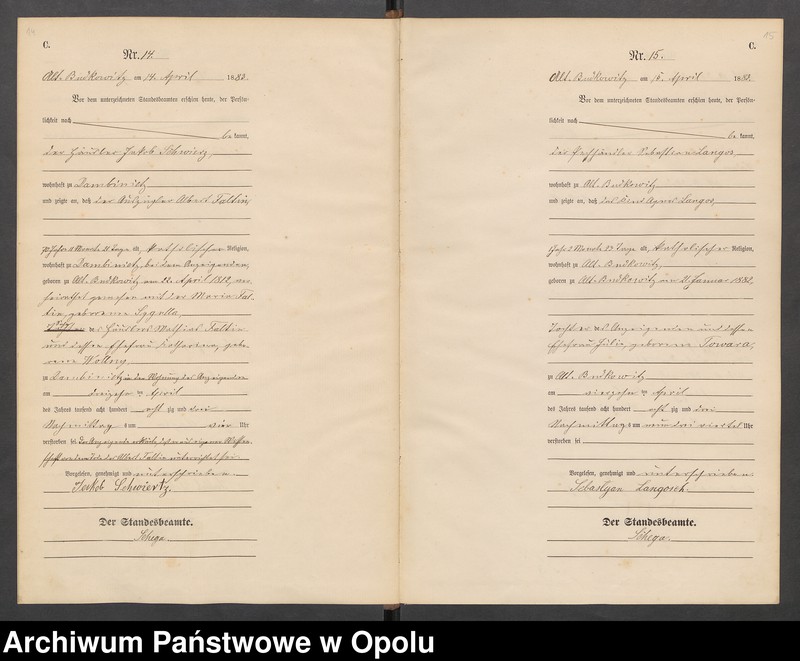 C.
Nr. 14.
Alt. Budkowitz am 14. April 1883.
Vor dem unterzeichneten Standesbeamten erschien heute, der Persön-
lichkeit nach
be kannt,
der Häusler Jakob Schwierz,
wohnhaft zu Dambinietz
und zeigte an, daß der Albert Faltin,
70 Jahre 11 Monate 21 Tage alt, katholischer Religion,
wohnhaft zu Dambinietz, bei dem Anzeigenden,
geboren zu Alt. Budkowitz am 22. April 1812, ver-
heirathet gewesen mit der Maria Fal-
tin, geborene Sygulla,
Sohn des Häuslers Mathias Faltin
und dessen Ehefrau Katharina, gebo-
rene Wollny,
zu Dambinietz in der Wohnung des Anzeigenden
am dreizehn ten April
des Jahres tausend acht hundert acht zig und drei
Nachmittags um vier Uhr
verstorben sei
Vorgelesen, genehmigt und unterschrieben.
Jakob Schwiertz.
Der Standesbeamte.
Schega.
15
C.
Nr. 15.
Alt. Budkowitz am 15. April 1883.
Vor dem unterzeichneten Standesbeamten erschien heute, der Persön-
lichkeit nach
be kannt,
der Sebastian Langos,
wohnhaft zu Alt. Budkowitz
und zeigte an, daß das Kind Agnes Langos,
1 Jahr 2 Monate 23 Tage alt, katholischer Religion,
wohnhaft zu Alt. Budkowitz
geboren zu Alt. Budkowitz am Januar 1882,
Tochter des Anzeigenden und dessen
Ehefrau Julie, geborene Towara,
zu Alt. Budkowitz
am vierzehn ten April
des Jahres tausend acht hundert acht zig und drei
Nachmittags um neun drei viertel Uhr
verstorben sei
Vorgelesen, genehmigt und unterschrieben.
Sebastyan Langosch.
Der Standesbeamte.
Schega.
Archiwum Państwowe w Opolu